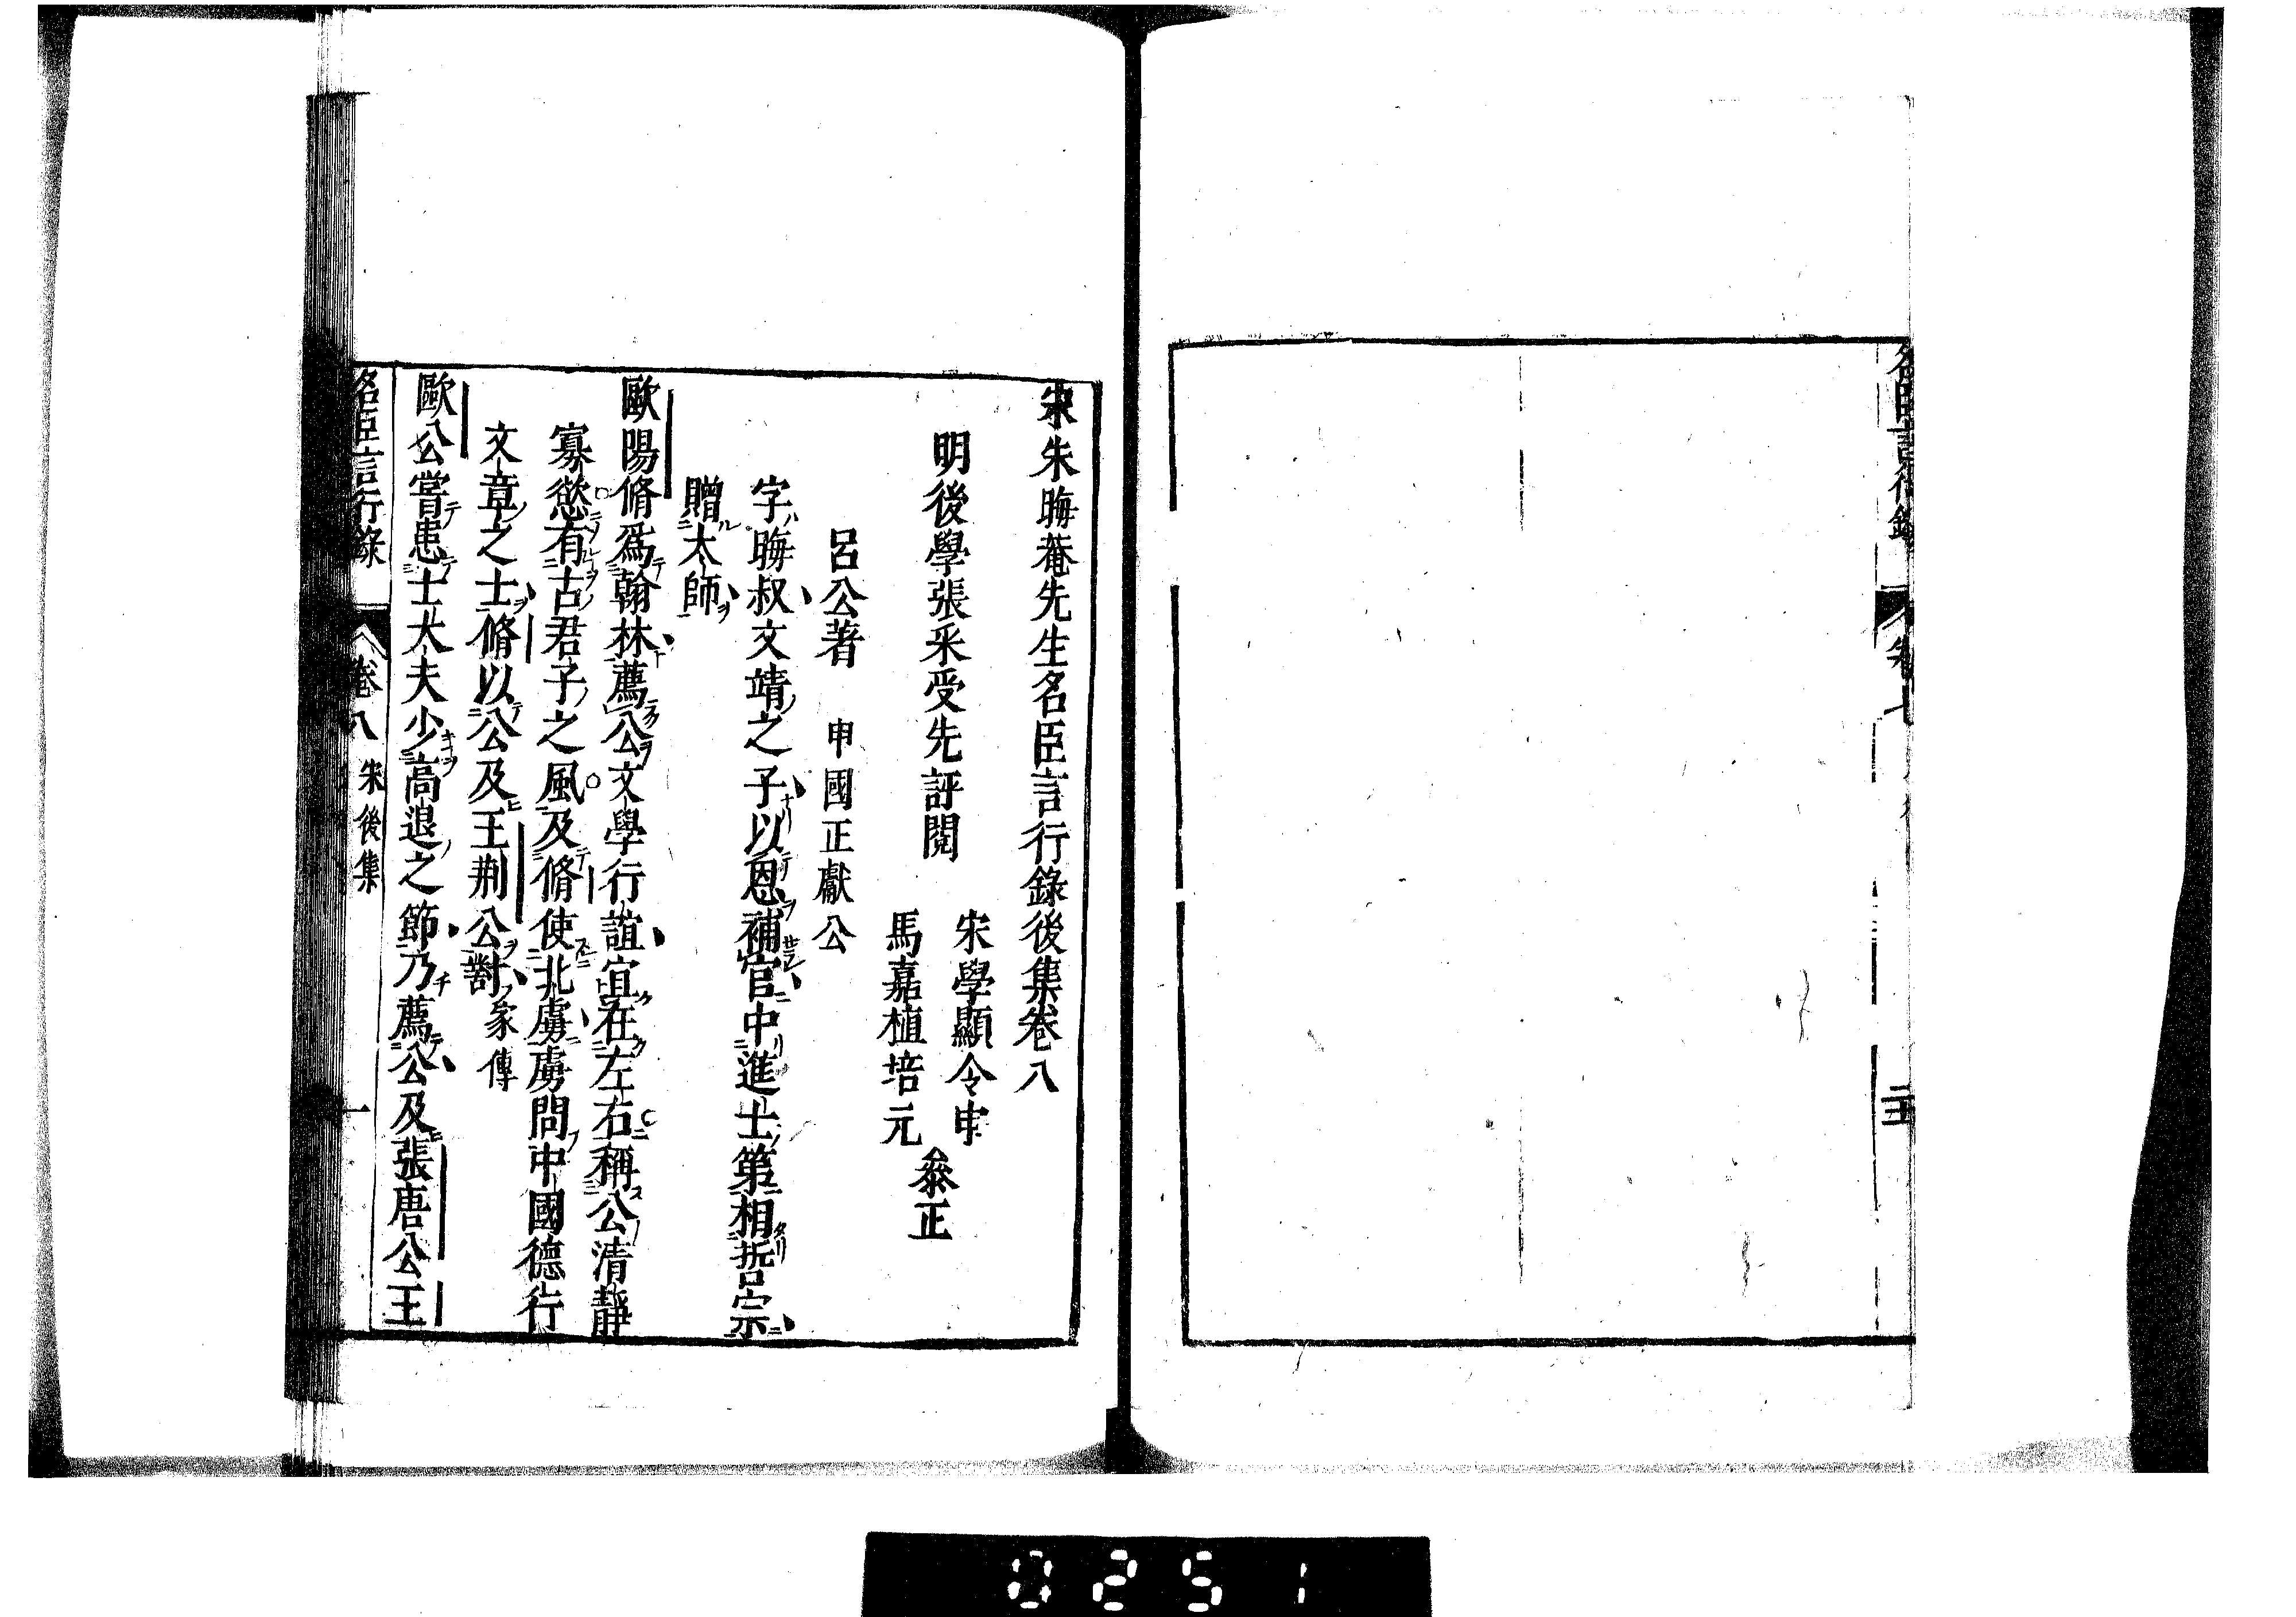 名臣言行錄
卷七
二十五
宋朱晦菴先生名臣言行錄後集卷八
明後學張采受先評閱
宋學顯令申
馬嘉植培元
叅正
呂公著　申國正獻公
字晦叔文靖之子以恩補官中進士第相哲宗
贈太師
歐陽脩爲翰林薦公文學行誼宜在左右稱公清靜
寡慾有古君子之風及脩使北虜虜問中國德行
文章之士脩以公及王荆公對家傳
歐公嘗患士大夫少高退之節乃薦公及張唐公王
名臣言行錄　卷八　宋後集　一
0251